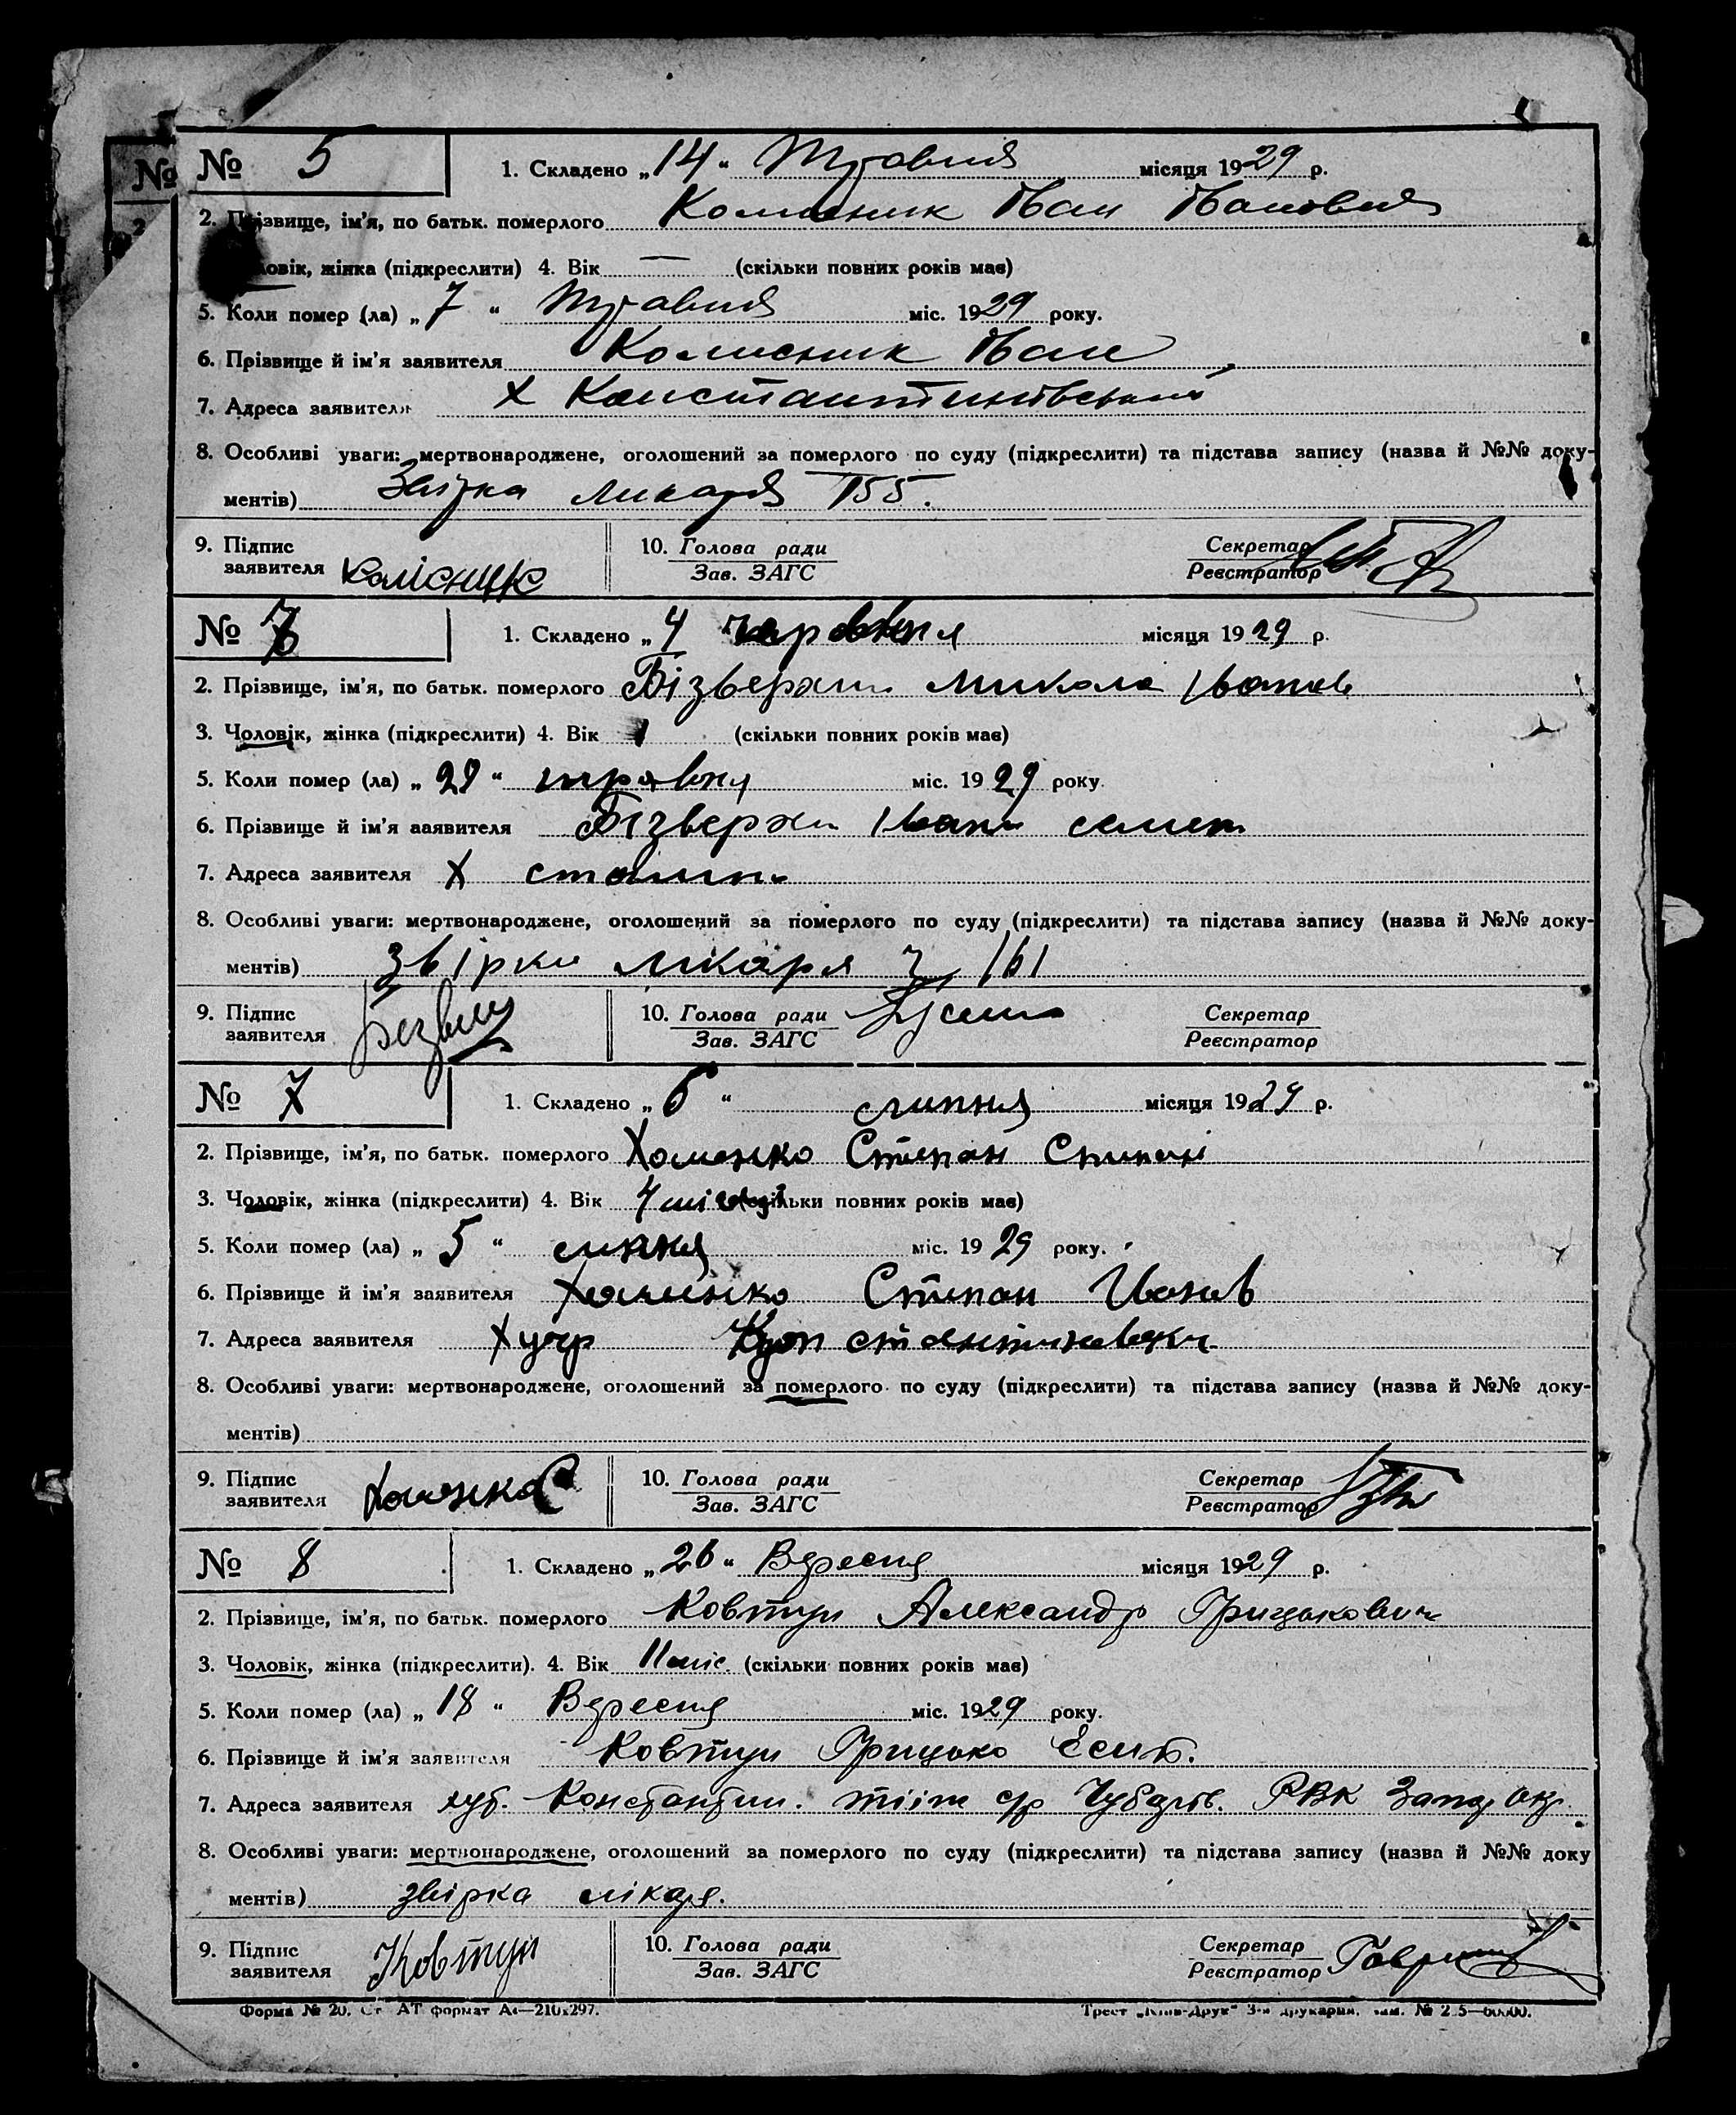 №
№ 5 1. Складено „14“ Травня місяця 1929 р.
2. Прізвище, ім'я, по батьк. померлого Колисник Іван Іванович
ловік, жінка (підкреслити) 4. Вік — (скільки повних років має)
5. Коли помер (ла) „7“ Травня міс. 1929 року.
6. Прізвище й ім'я заявителя Колисник Іван
7. Адреса заявителя Х Константинівський
8. Особливі уваги: мертвонароджене, оголошений за померлого по суду (підкреслити) та підстава запису (назва й №№ доку-
ментів) Звірка ликаря 155.
9. Підпис заявителя Колісник 10. Голова ради Зав. ЗАГС Секретар Реєстратор
№ 1. Складено „4 червня місяця 1929 р.
2. Прізвище, ім'я, по батьк. померлого Бізверхи Микола Іванов
3. Чоловік, жінка (підкреслити) 4. Вік 1 (скільки повних років має)
5. Коли помер (ла) „29“ травня міс. 1929 року.
6. Прізвище й ім'я заявителя Бізверхи Іван семен
7. Адреса заявителя Х
8. Особливі уваги: мертвонароджене, оголошений за померлого по суду (підкреслити) та підстава запису (назва й №№ доку-
ментів) звірка лікаря з/ 161
9. Підпис заявителя 10. Голова ради Зав. ЗАГС Секретар Реєстратор
№ 7 1. Складено „6“ липня місяця 1929 р.
2. Прізвище, ім'я, по батьк. померлого Хоменко Степан Степан
3. Чоловік, жінка (підкреслити) 4. Вік 4 місяці (скільки повних років має)
5. Коли помер (ла) „5“ липня міс. 1929 року.
6. Прізвище й ім'я заявителя Хоменко Степан Иванов
7. Адреса заявителя Хутр Константиновски
8. Особливі уваги: мертвонароджене, оголошений за померлого по суду (підкреслити) та підстава запису (назва й №№ доку-
ментів)
9. Підпис заявителя Хоменко С 10. Голова ради Зав. ЗАГС Секретар Реєстратор
№ 8 1. Складено „26“ Вересня місяця 1929 р.
2. Прізвище, ім'я, по батьк. померлого Ковтун Александр Грицькович
3. Чоловік, жінка (підкреслити). 4. Вік 11 міс. (скільки повних років має)
5. Коли помер (ла) „18“ Вересня міс. 1929 року.
6. Прізвище й ім'я заявителя Ковтун Грицько Есип.
7. Адреса заявителя хут. Константин. с/р Чубарів. РВК Запор окр.
8. Особливі уваги: мертвонароджене, оголошений за померлого по суду (підкреслити) та підстава запису (назва й №№ доку
ментів) звірка лікаря.
9. Підпис заявителя Ковтун 10. Голова ради Зав. ЗАГС Секретар Реєстратор
Форма № 20. Ст АТ формат А4—210х297. Трест „Київ-Друк“ 3-я друкарня.